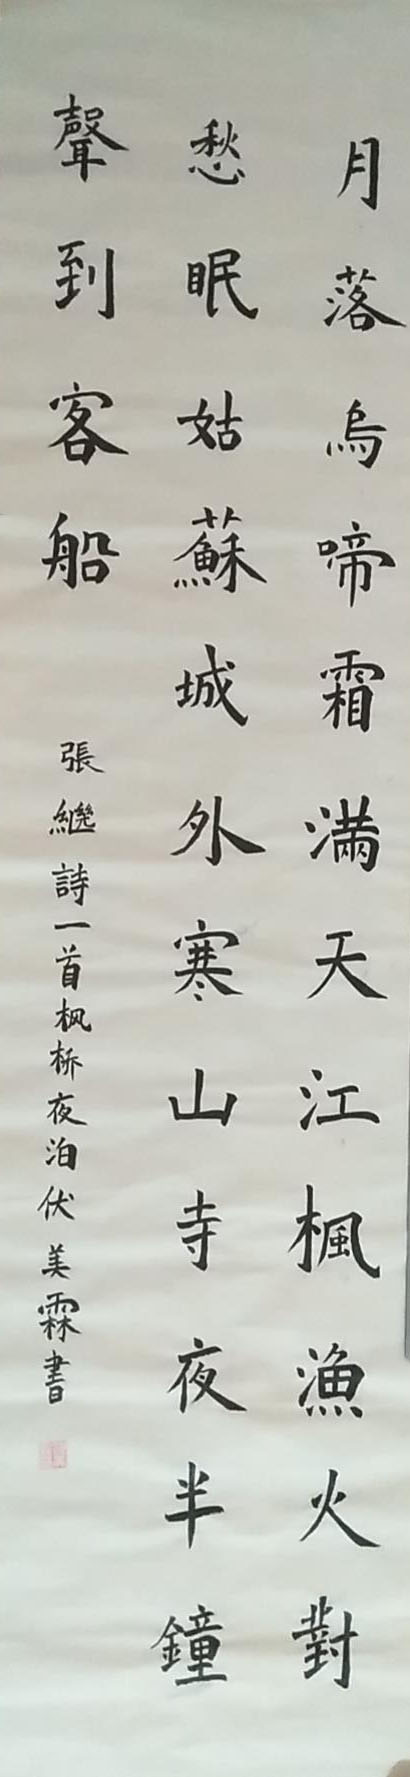 月落烏啼霜滿天江楓漁火對
愁眠姑蘇城外寒山寺夜半鐘
聲到客船
張繼詩一首枫桥夜泊伏美霖書